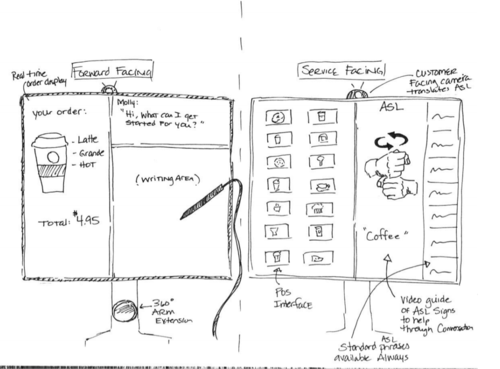 Forward Facing
Real time
order display
your order:
- Latte
- Grande
- HOT
Total: $4.95
Molly:
"Hi, What can I get
started for you?"
(Writing Area)
360°
ARM
Extension
Service Facing
CUSTOMER
Facing camera
translates ASL
ASL
"Coffee"
POS
Interface
Video guide
of ASL Signs
to help
through Conversation
ASL
Standard phrases
available Always